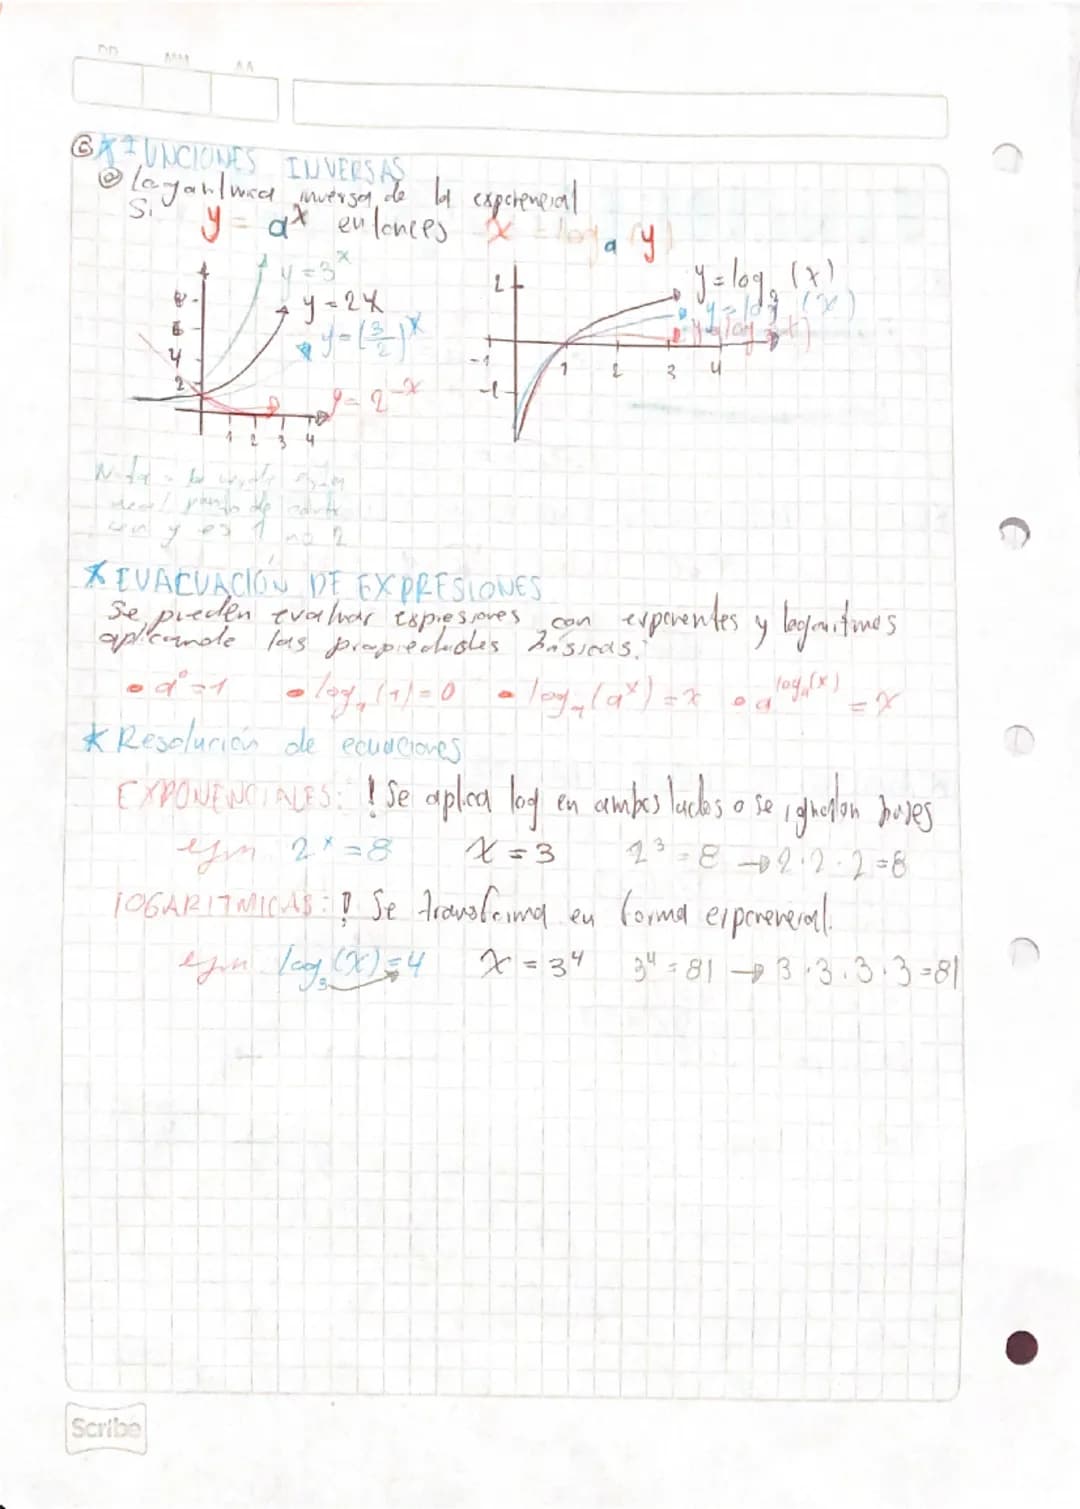 DD MM AA
⑥ * FUNCIONES INVERSAS
@ Logarítmica inversa de la exponencial
Si y = a^x entonces x = log_a (y)
y = 3^x
y = 2^x
y = (3/2)^x
y = 2^-x
8
6
4
2
1 2 3 4
y = log_2 (x)
2
-1
-1
1 2 3 4
punto de
en y es 1 no 2
* EVACUACIÓN DE EXPRESIONES
Se pueden evaluar expresiones con exponentes y logaritmos
aplicando las propiedades básicas:
• a^0 = 1 • log_a (1) = 0 • log_a (a^x) = x • a^log_a(x) = x
* Resolución de ecuaciones
EXPONENCIALES: ! Se aplica log en ambos lados o se igualan bases
ejm 2^x = 8 x = 3 2^3 = 8 → 2·2·2 = 8
LOGARITMICAS: ! Se transforma en forma exponencial.
ejm log_3 (x) = 4 x = 3^4 3^4 = 81 → 3·3·3·3 = 81
Scribe